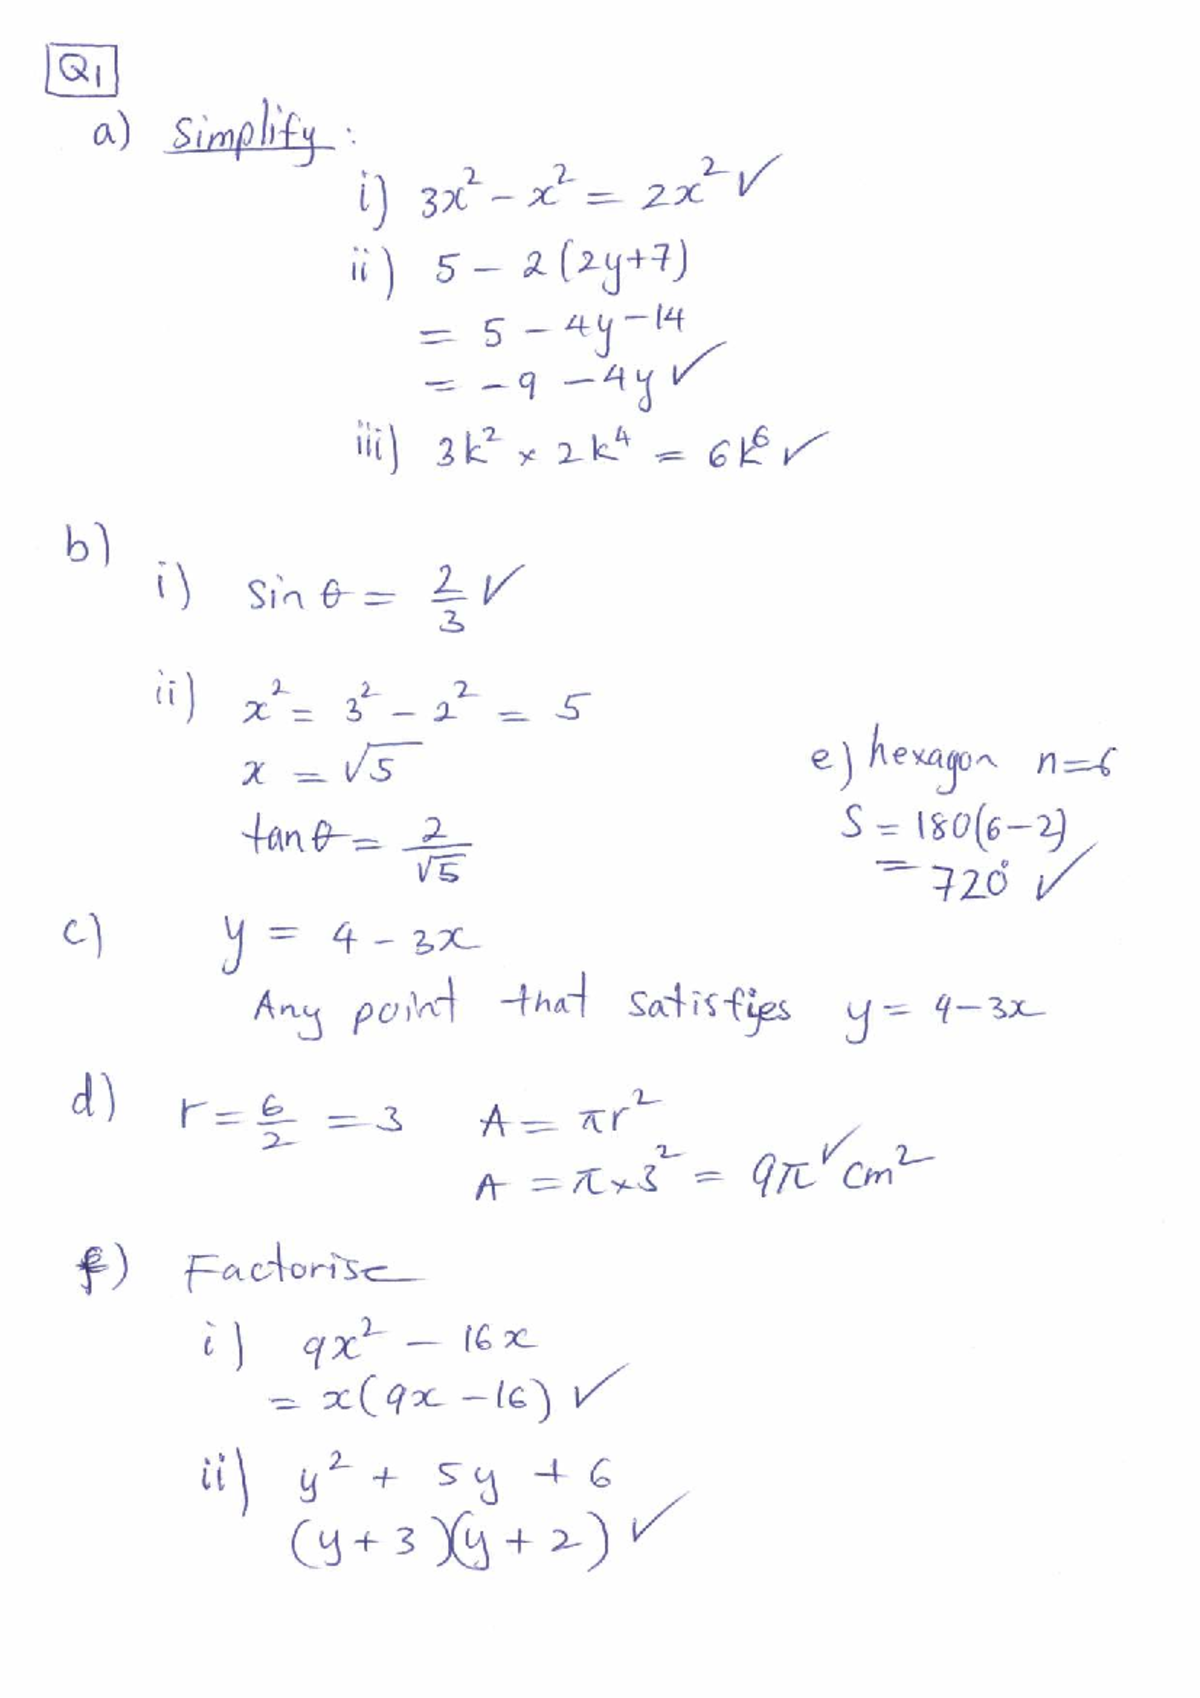 Q1
a) Simplify:
i) 3x² - x² = 2x² ✓
ii) 5 - 2(2y+7)
= 5 - 4y - 14
= -9 - 4y ✓
iii) 3k² × 2k⁴ = 6k⁶ ✓
b)
i) sin θ = 2/3 ✓
ii) x² = 3² - 2² = 5
x = √5
tan θ = 2/√5
e) hexagon n=6
S = 180(6-2)
= 720° ✓
c) y = 4 - 3x
Any point that satisfies y = 4-3x
d) r = 6/2 = 3 A = πr²
A = π×3² = 9π ✓ cm²
f) Factorise
i) 9x² - 16x
= x(9x - 16) ✓
ii) y² + 5y + 6
(y+3)(y+2) ✓